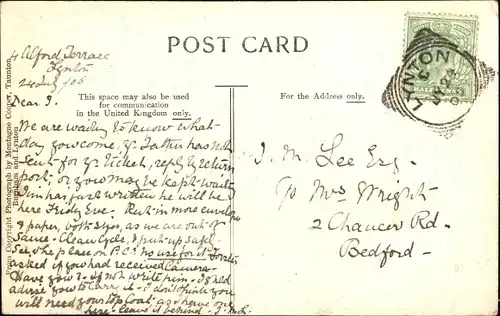 POST CARD
4 Alford Terrace
Lynton
24 July /06
Dear J.
This space may also be used
for communication
in the United Kingdom only.
For the Address only.
We are waiting to know what
day you come, Yr Father has not
sent for yr ticket, reply by return
post, or you may be kept waiting
Jim has just written he will be
here Friday Eve. Put in more envelopes
& paper, both sizes, as we are out of
same. Clean Cycle, & put up safe
See the place on P.C. no use for it.
asked if you had received Camera
Have you? If not write him. I shld
advise you to carry it. I don't think you
will need your top coat, as I have one
here - leave it behind. J.M.L.
J. M. Lee Esq.
c/o Mrs Wright
2 Chaucer Rd.
Bedford -
LYNTON
From Copyright Photograph by Montague Cooper, Taunton,
Burnham and Lynton